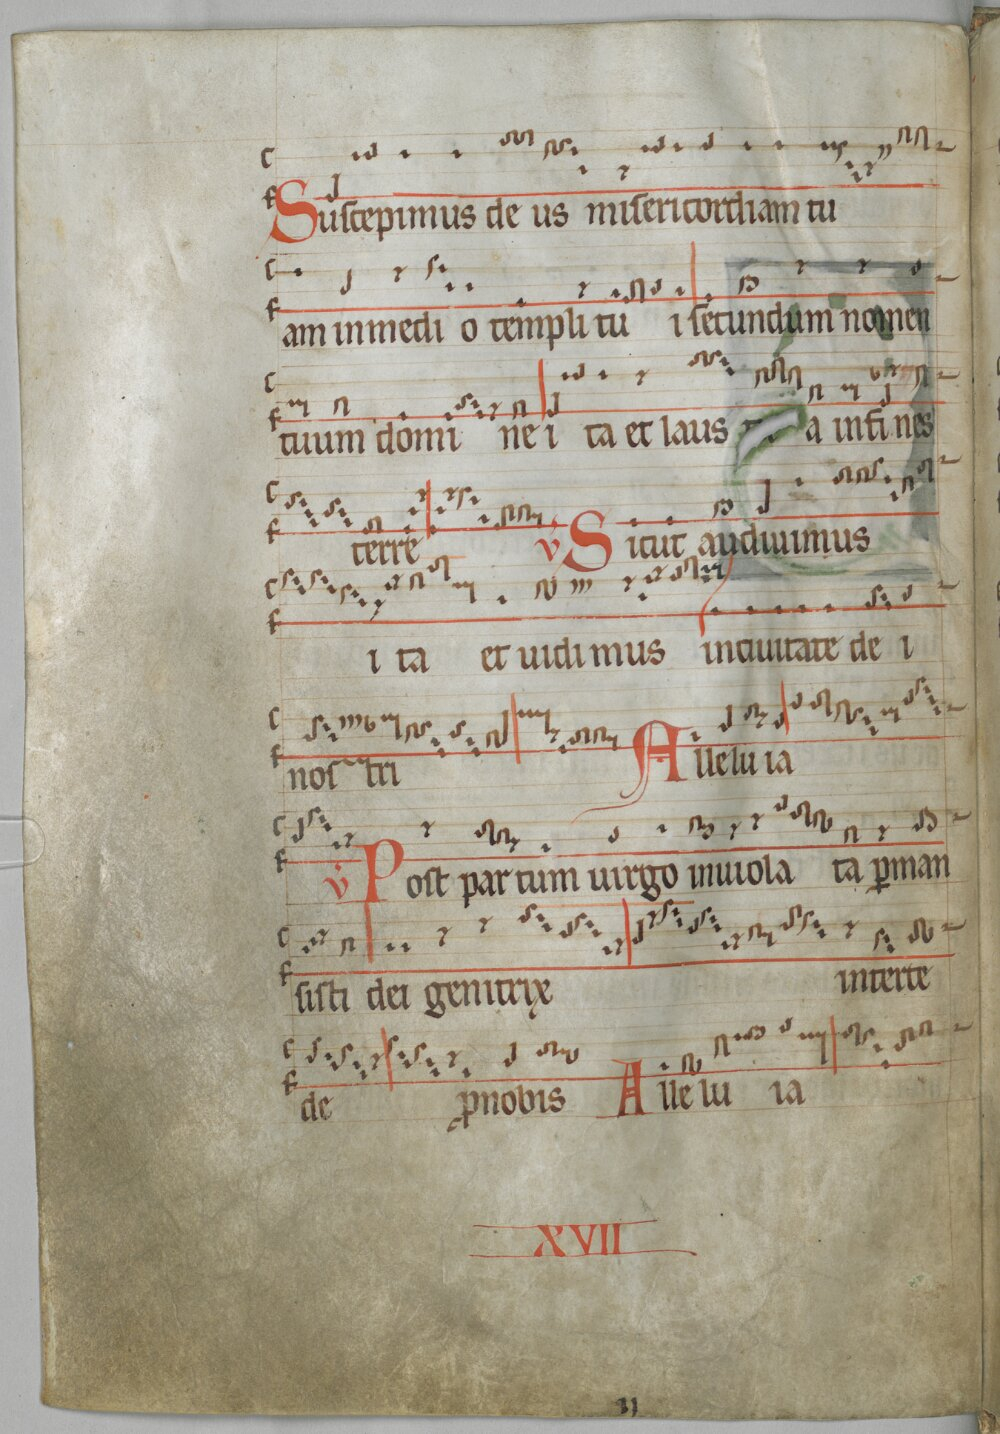 Suscepimus de us misericordiam tu
am in medi o templi tu i secundum nomen
tuum domi ne i ta et laus a in fi nes
terre v Sicut audiuimus
i ta et uidi mus in ciuitate de i
nos tri Alleluia
v Post partum uirgo inuiola ta ꝑman
sisti dei genitrix interce
de ꝓ nobis Allelu ia
XVII